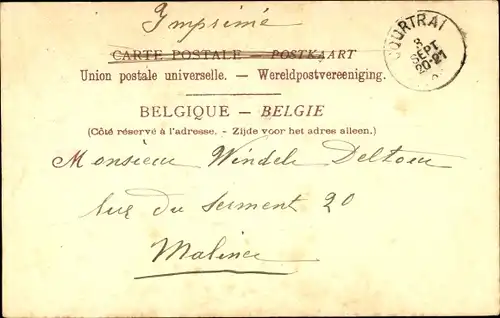 Imprimé
CARTE POSTALE — POSTKAART
Union postale universelle. — Wereldpostvereeniging.
BELGIQUE — BELGIE
(Côté réservé à l'adresse. - Zijde voor het adres alleen.)
COURTRAI
3
SEPT
20-21
Monsieur
du serment 20
Malines